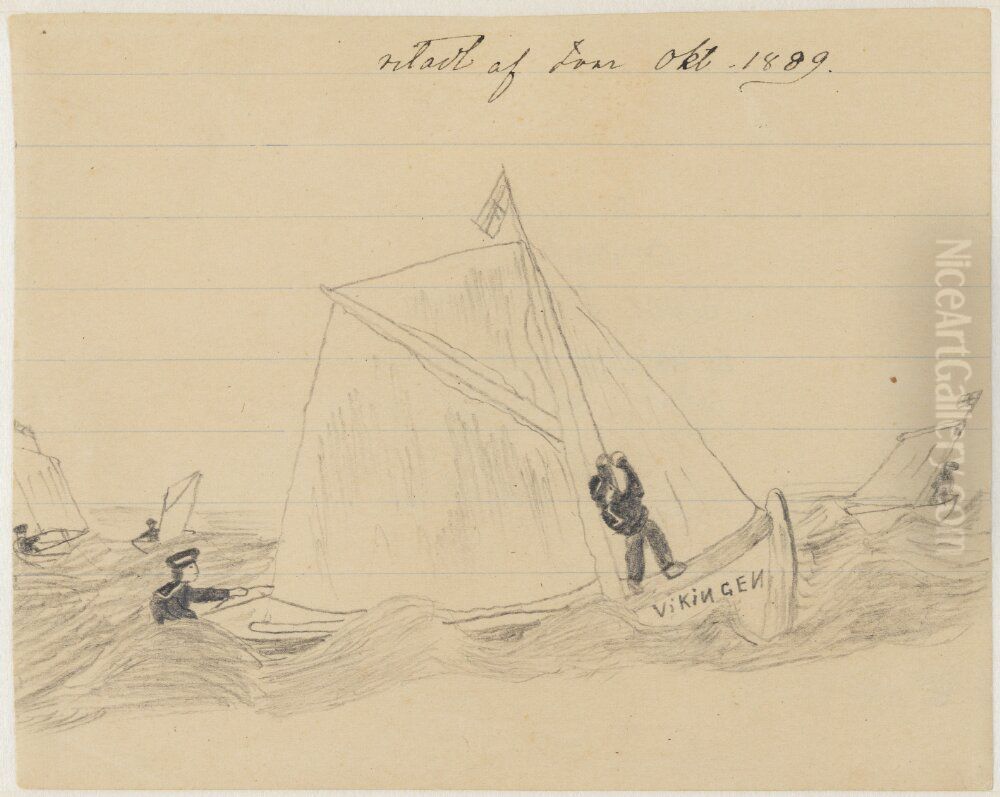 ritadt af Ivar Okt. 1889.
ViKiNGEN
NiceArtGallery.com